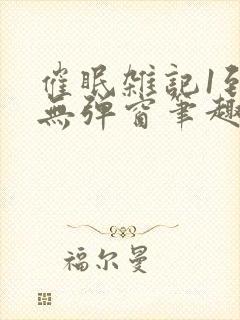 催眠雑記1到
無弹窗筆趣
福尔曼